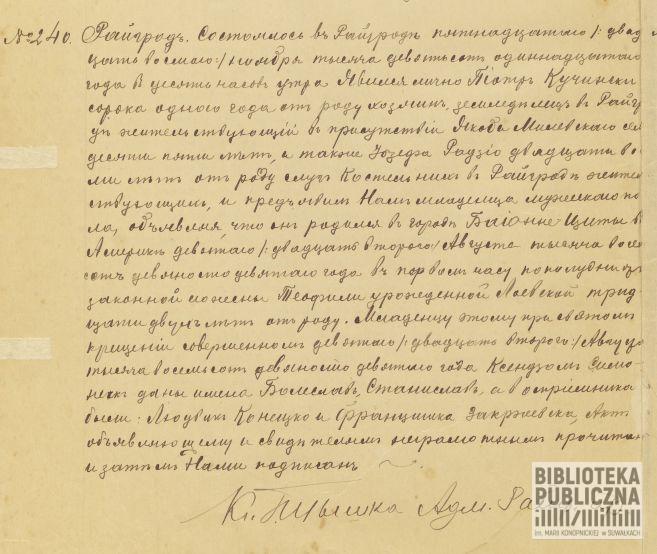 №240. Райгродъ. Состоялось въ Райгродѣ пятнадцатаго /: двад
цать восьмого :/ ноября тысяча девятьсотъ одиннадцатаго
года въ десять часовъ утра. Явился лично Піотръ Кучински
сорока одного года отъ роду хозяинъ, земледѣлецъ въ Райгр
дѣ жительствующій въ присутствіи Якова Милевскаго сем
десяти пяти лѣтъ, а также Іозефа Радзіо двадцати во
ми лѣтъ отъ роду слугъ костельныхъ въ Райгродѣ жител
ствующихъ, и предъявилъ Намъ младенца мужескаго по
ла, объявляя, что онъ родился въ городѣ Баіонне Циты въ
Америкѣ девятаго /: двадцать второго :/ Августа тысяча восем
сотъ девяносто девятаго года въ первомъ часу пополудни изъ
законной его жены Теофили урожденной Лаевской трид
цати двухъ лѣтъ отъ роду. Младенцу этому при святомъ
крещеніи совершенномъ девятаго /: двадцать второго :/ Августа
тысяча восемьсотъ девяносто девятаго года Ксендзомъ
даны имена Болеславъ, Станиславъ, а воспріемниками
были: Людвикъ Конецко и Францишка Закржевска. Актъ
объявляющему и свидѣтелямъ неграмотнымъ прочитанъ
и затѣмъ Нами подписанъ
Кс. Адм.
BIBLIOTEKA
PUBLICZNA
im. MARII KONOPNICKIEJ w SUWAŁKACH